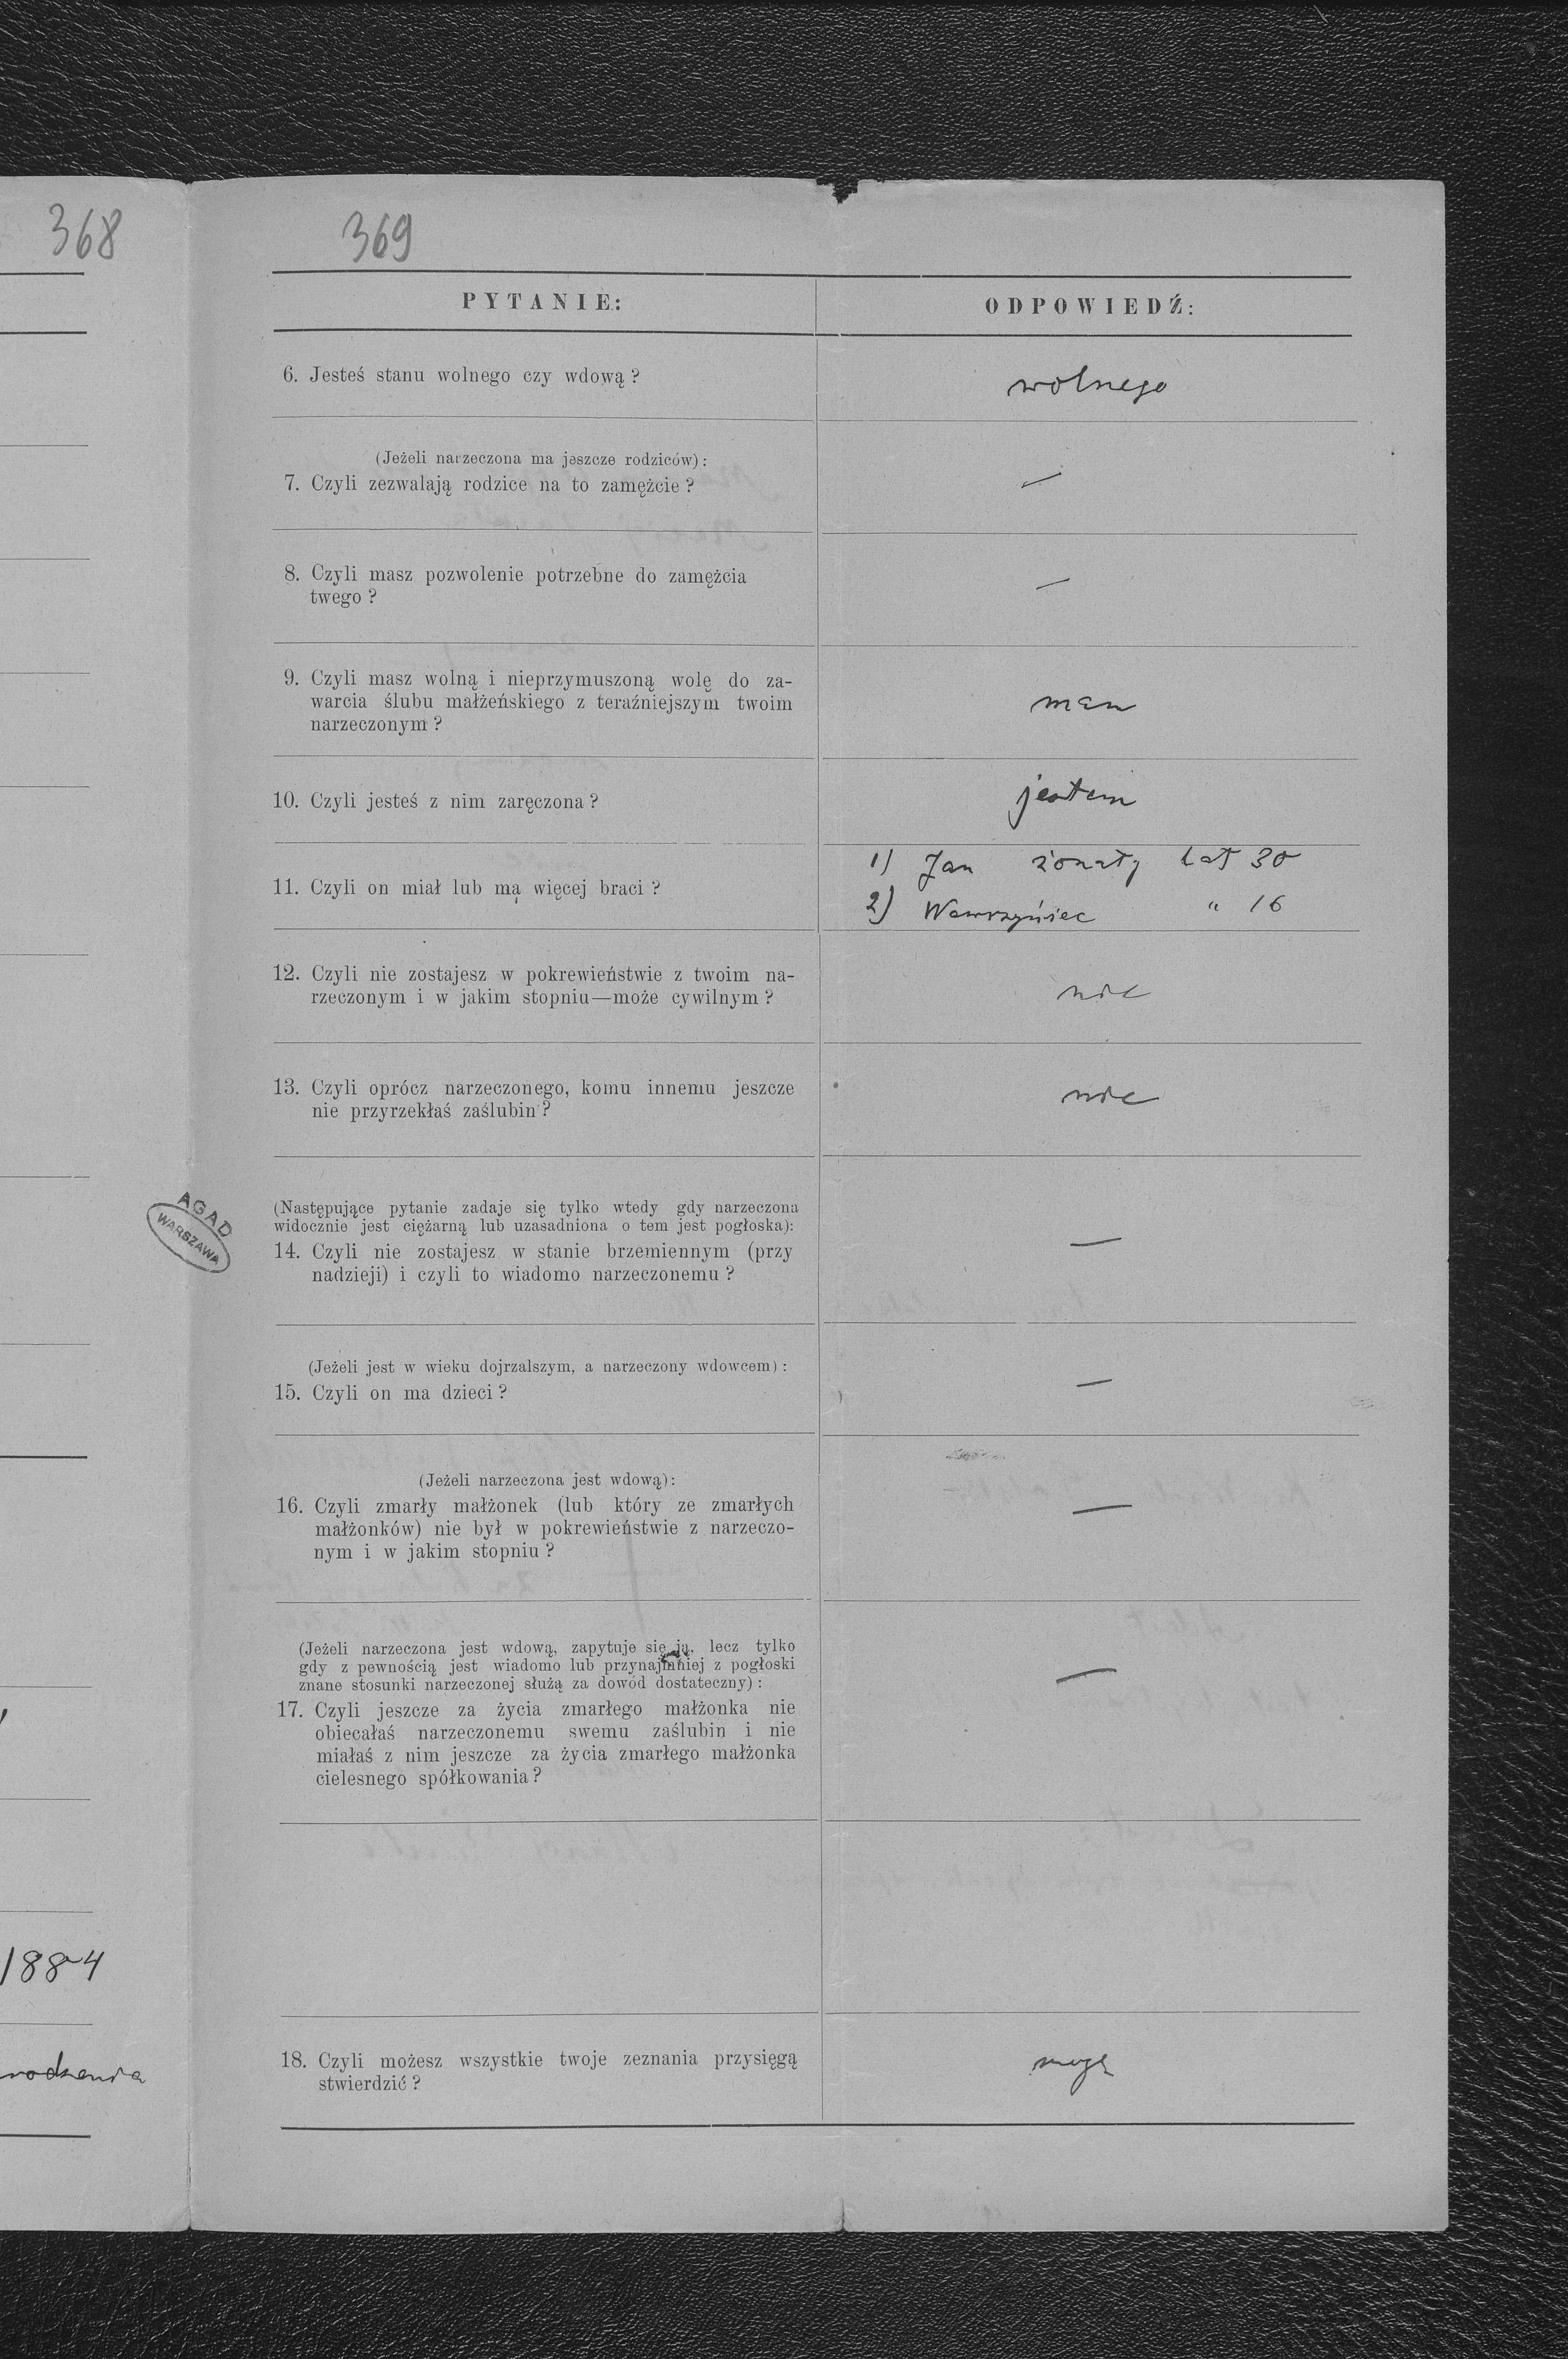 368
1884
369
PYTANIE:
ODPOWIEDŹ:
6. Jesteś stanu wolnego czy wdową?
wolnego
(Jeżeli narzeczona ma jeszcze rodziców):
7. Czyli zezwalają rodzice na to zamężcie?
—
8. Czyli masz pozwolenie potrzebne do zamężcia
twego?
—
9. Czyli masz wolną i nieprzymuszoną wolę do za-
warcia ślubu małżeńskiego z teraźniejszym twoim
narzeczonym?
mam
10. Czyli jesteś z nim zaręczona?
jestem
11. Czyli on miał lub mą więcej braci?
1) Jan żonaty lat 30
2) Wawrzyniec " 16
12. Czyli nie zostajesz w pokrewieństwie z twoim na-
rzeczonym i w jakim stopniu—może cywilnym?
nie
13. Czyli oprócz narzeczonego, komu innemu jeszcze
nie przyrzekłaś zaślubin?
nie
AGAD
WARSZAWA
(Następujące pytanie zadaje się tylko wtedy gdy narzeczona
widocznie jest ciężarną lub uzasadniona o tem jest pogłoska):
14. Czyli nie zostajesz w stanie brzemiennym (przy
nadzieji) i czyli to wiadomo narzeczonemu?
—
(Jeżeli jest w wieku dojrzalszym, a narzeczony wdowcem):
15. Czyli on ma dzieci?
—
(Jeżeli narzeczona jest wdową):
16. Czyli zmarły małżonek (lub który ze zmarłych
małżonków) nie był w pokrewieństwie z narzeczo-
nym i w jakim stopniu?
—
(Jeżeli narzeczona jest wdową, zapytuje się ją, lecz tylko
gdy z pewnością jest wiadomo lub przynajmniej z pogłoski
znane stosunki narzeczonej służą za dowód dostateczny):
17. Czyli jeszcze za życia zmarłego małżonka nie
obiecałaś narzeczonemu swemu zaślubin i nie
miałaś z nim jeszcze za życia zmarłego małżonka
cielesnego spółkowania?
—
18. Czyli możesz wszystkie twoje zeznania przysięgą
stwierdzić?
mogę